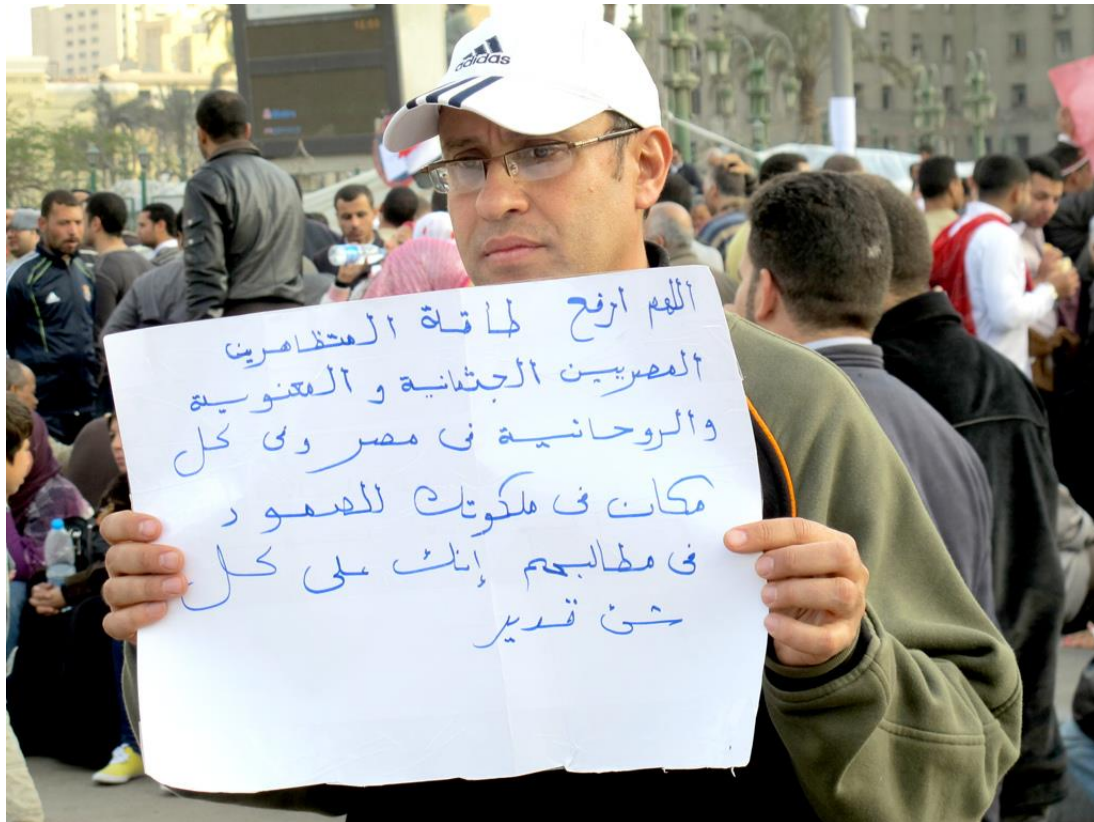 adidas
اللهم ارفع طاقة المتظاهرين
المصريين الجثمانية و المعنوية
والروحانية فى مصر وفى كل
مكان فى ملكوتك للصمود
فى مطالبهم إنك على كل
شئ قدير